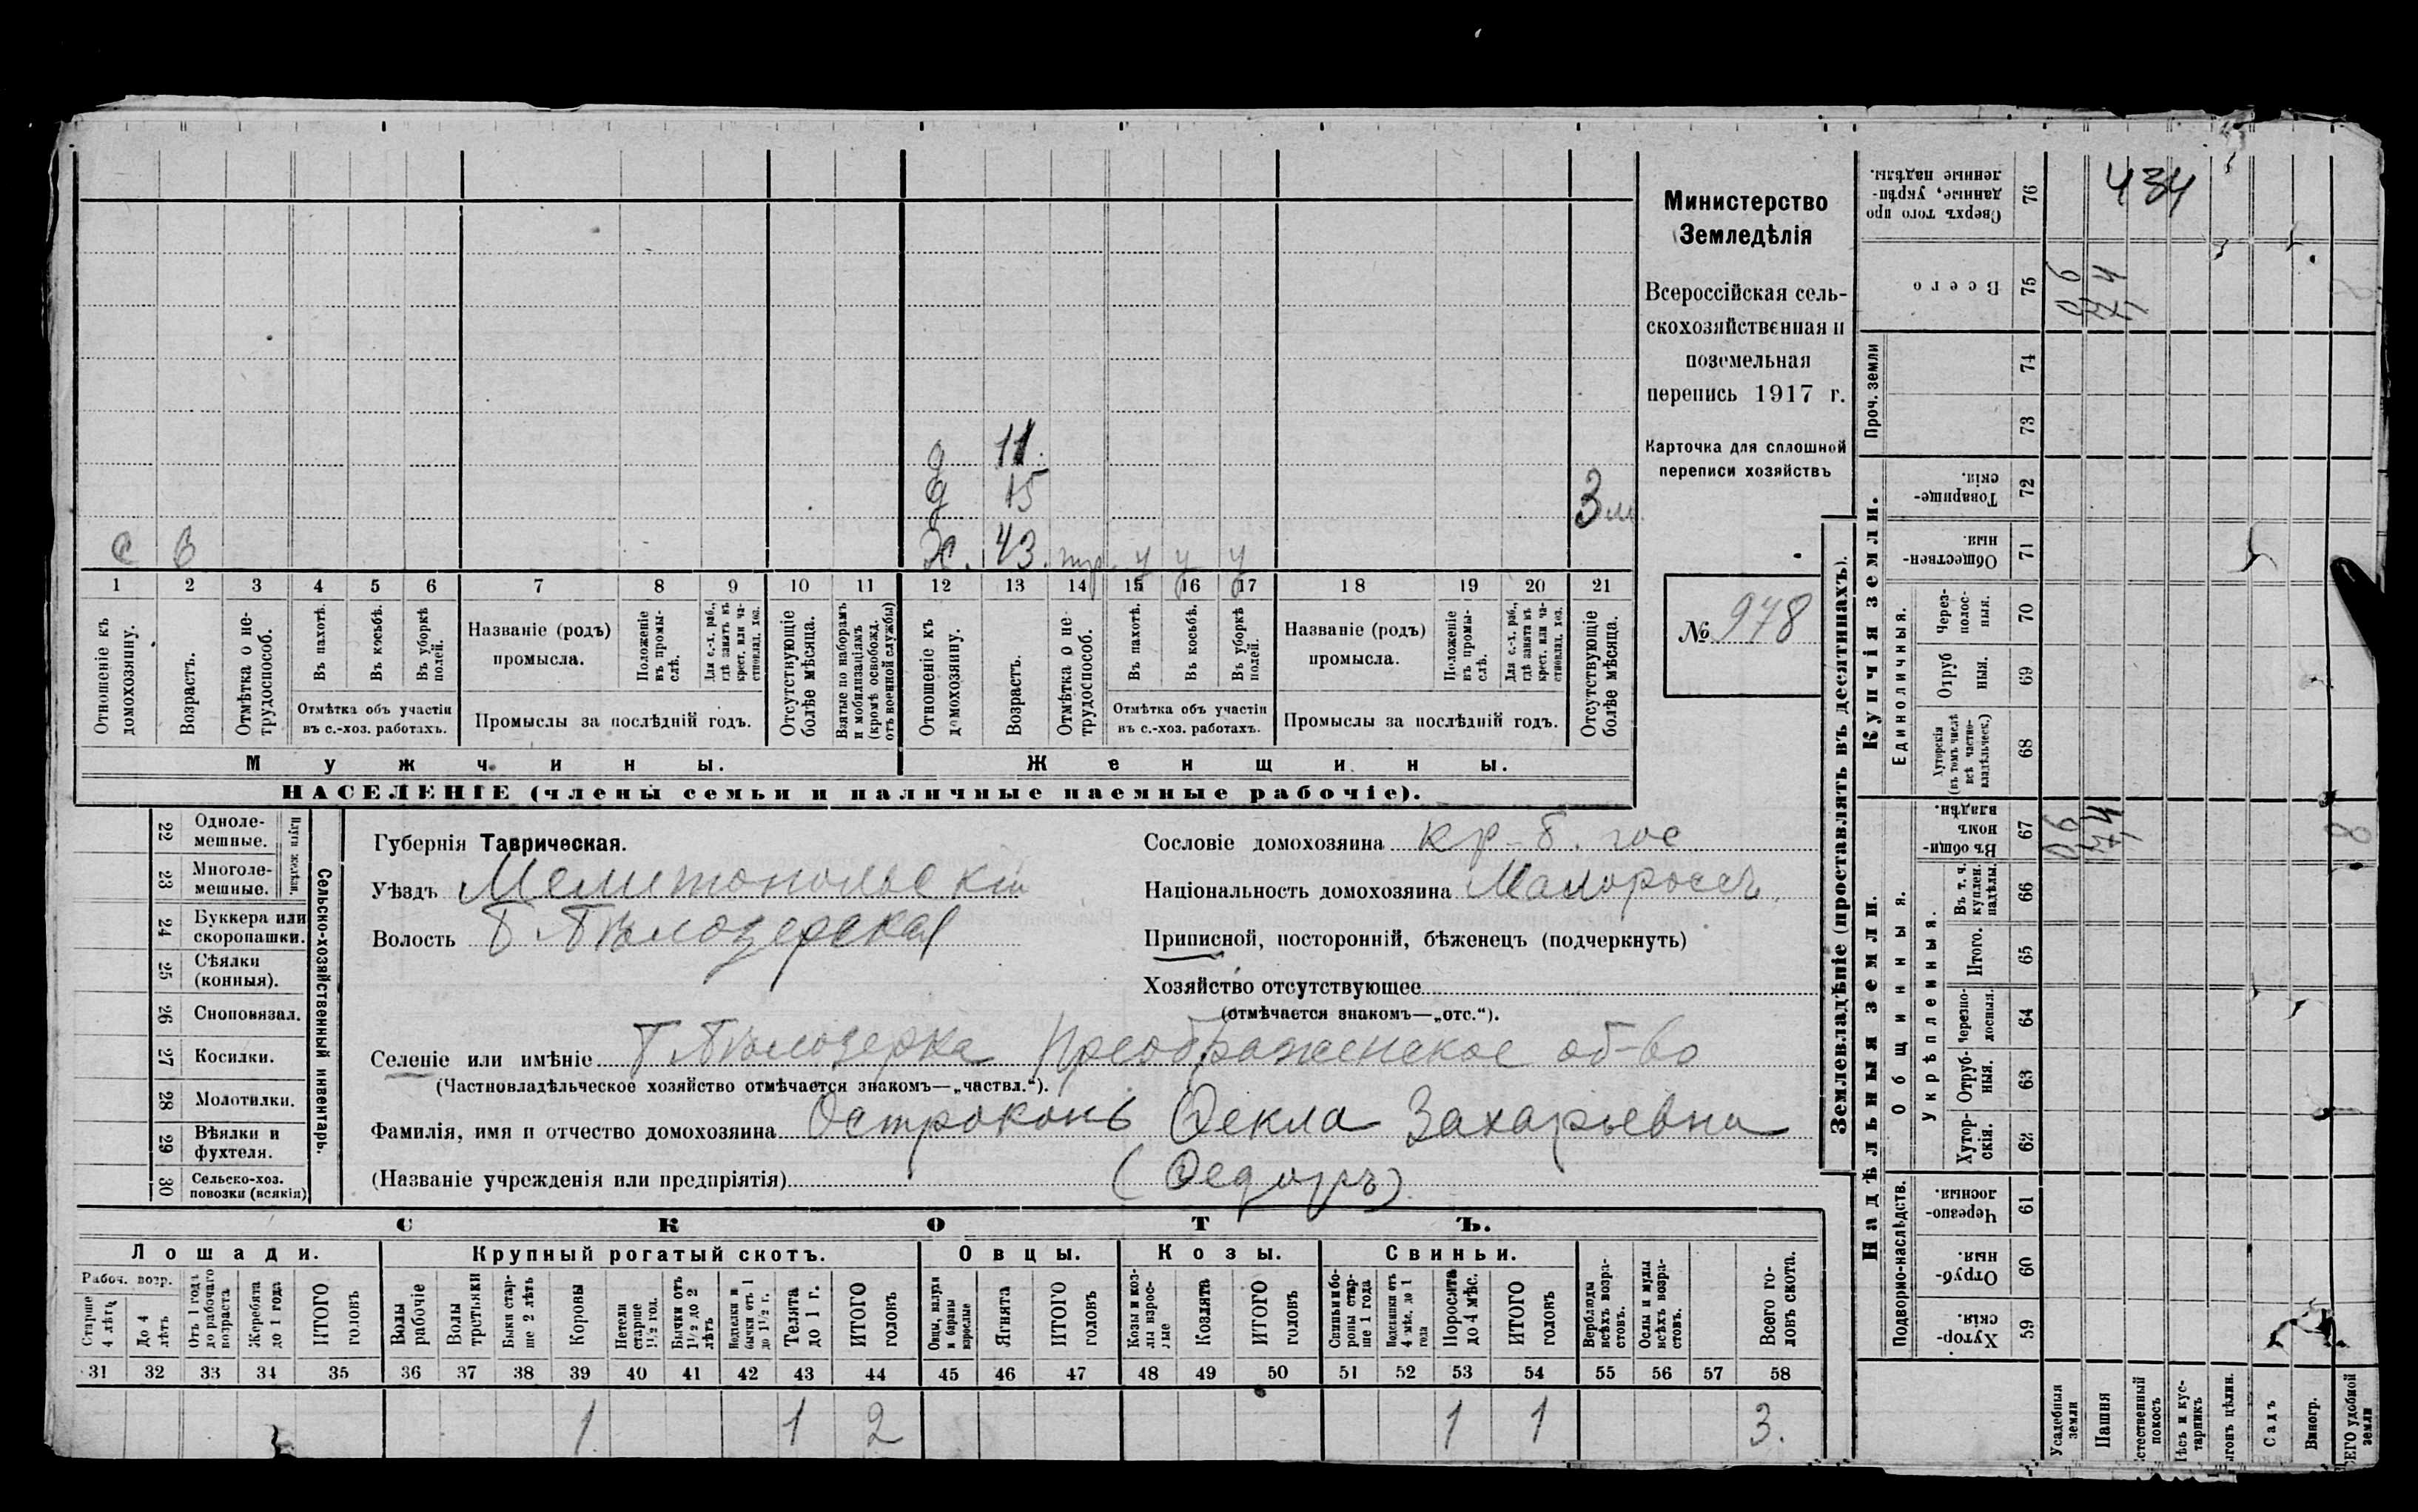 Министерство
Земледѣлія
Всероссійская сель-
скохозяйственная и
поземельная
перепись 1917 г.
Карточка для сплошной
переписи хозяйствъ
№ 978
434
д 11.
д 15
3 м.
с в
Ж. 43. тр. у у у
1 2 3 4 5 6 7 8 9 10 11 12 13 14 15 16 17 18 19 20 21
Отношеніе къ домохозяину.
Возрастъ.
Отмѣтка о не-трудоспособ.
Въ пахотѣ.
Въ косьбѣ.
Въ уборкѣ полей.
Отмѣтка объ участіи
въ с.-хоз. работахъ.
Названіе (родъ)
промысла.
Положеніе въ промы-слѣ.
Для с.-х. раб., гдѣ занятъ въ крест. или ча-стновлад. хоз.
Промыслы за послѣдній годъ.
Отсутствующіе болѣе мѣсяца.
Взятые по наборамъ и мобилизаціямъ (кромѣ освобожд. отъ военной службы)
Отношеніе къ домохозяину.
Возрастъ.
Отмѣтка о не-трудоспособ.
Въ пахотѣ.
Въ косьбѣ.
Въ уборкѣ полей.
Отмѣтка объ участіи
въ с.-хоз. работахъ.
Названіе (родъ)
промысла.
Положеніе въ промы-слѣ.
Для с.-х. раб., гдѣ занята въ крест. или ча-стновлад. хоз.
Промыслы за послѣдній годъ.
Отсутствующіе болѣе мѣсяца.
Мужчины. Женщины.
НАСЕЛЕНІЕ (члены семьи и наличные наемные рабочіе).
Сельско-хозяйственный инвентарь.
Плуги желѣзн.
22 Одноле-мешные.
23 Многоле-мешные.
24 Буккера или скоропашки.
25 Сѣялки (конныя).
26 Сноповязал.
27 Косилки.
28 Молотилки.
29 Вѣялки и фухтеля.
30 Сельско-хоз. повозки (всякія)
Губернія Таврическая.
Уѣздъ Мелитопольскій
Волость Б. Бѣлозерская
Сословіе домохозяина кр-б. гос
Національность домохозяина Малороссъ.
Приписной, посторонній, бѣженецъ (подчеркнуть)
Хозяйство отсутствующее
(отмѣчается знакомъ—„отс.“).
Селеніе или имѣніе Б. Бѣлозерка Преображенское об-во
(Частновладѣльческое хозяйство отмѣчается знакомъ—„частвл.“).
Фамилія, имя и отчество домохозяина Остроконь Ѳекла Захарьевна
(Названіе учрежденія или предпріятія) (Ѳедоръ)
СКОТЪ.
Лошади. Крупный рогатый скотъ. Овцы. Козы. Свиньи.
Рабоч. возр.
Старше 4 лѣтъ
До 4 лѣтъ
Отъ 1 года до рабочаго возраста
Жеребята до 1 года
ИТОГО головъ
Волы рабочіе
Волы третьяки
Быки стар-ше 2 лѣтъ
Коровы
Нетели старше 1½ год.
Бычки отъ 1½ до 2 лѣтъ
Подтелки и бычки отъ 1 до 1½ г.
Телята до 1 г.
ИТОГО головъ
Овцы, валухи и бараны взрослые
Ягнята
ИТОГО головъ
Козы и коз-лы взрос-лые
Козлята
ИТОГО головъ
Свиньи и бо-ровы стар-ше 1 года
Подсвинки отъ 4 мѣс. до 1 года
Поросята до 4 мѣс.
ИТОГО головъ
Верблюды всѣхъ возра-стовъ.
Ослы и мулы всѣхъ возра-стовъ.
Всего го-ловъ скота.
31 32 33 34 35 36 37 38 39 40 41 42 43 44 45 46 47 48 49 50 51 52 53 54 55 56 57 58
1 1 2 1 1 3.
Землевладѣніе (проставлять въ десятинахъ).
Купчія земли.
Надѣльныя земли.
Сверхъ того про данные, укрѣп-ленные надѣлы. 76
Всего 75
Проч. земли
74
73
Товарище-скія. 72
Обществен-ныя. 71
Единоличныя.
Через-полос-ныя. 70
Отруб ныя. 69
Хуторскія (въ томъ числѣ всѣ частно-владѣльческ.) 68
Общинныя.
Въ общин-номъ владѣн. 67
Укрѣпленныя.
Въ т. ч. куплен. надѣлы 66
Итого. 65
Черезпо-лосныя. 64
Отруб-ныя. 63
Хутор-скія. 62
Подворно-наслѣдств.
Черезпо-лосныя. 61
Отруб-ныя. 60
Хутор-скія. 59
Усадебныя земли
Пашня
Сад ъ
Виногр.